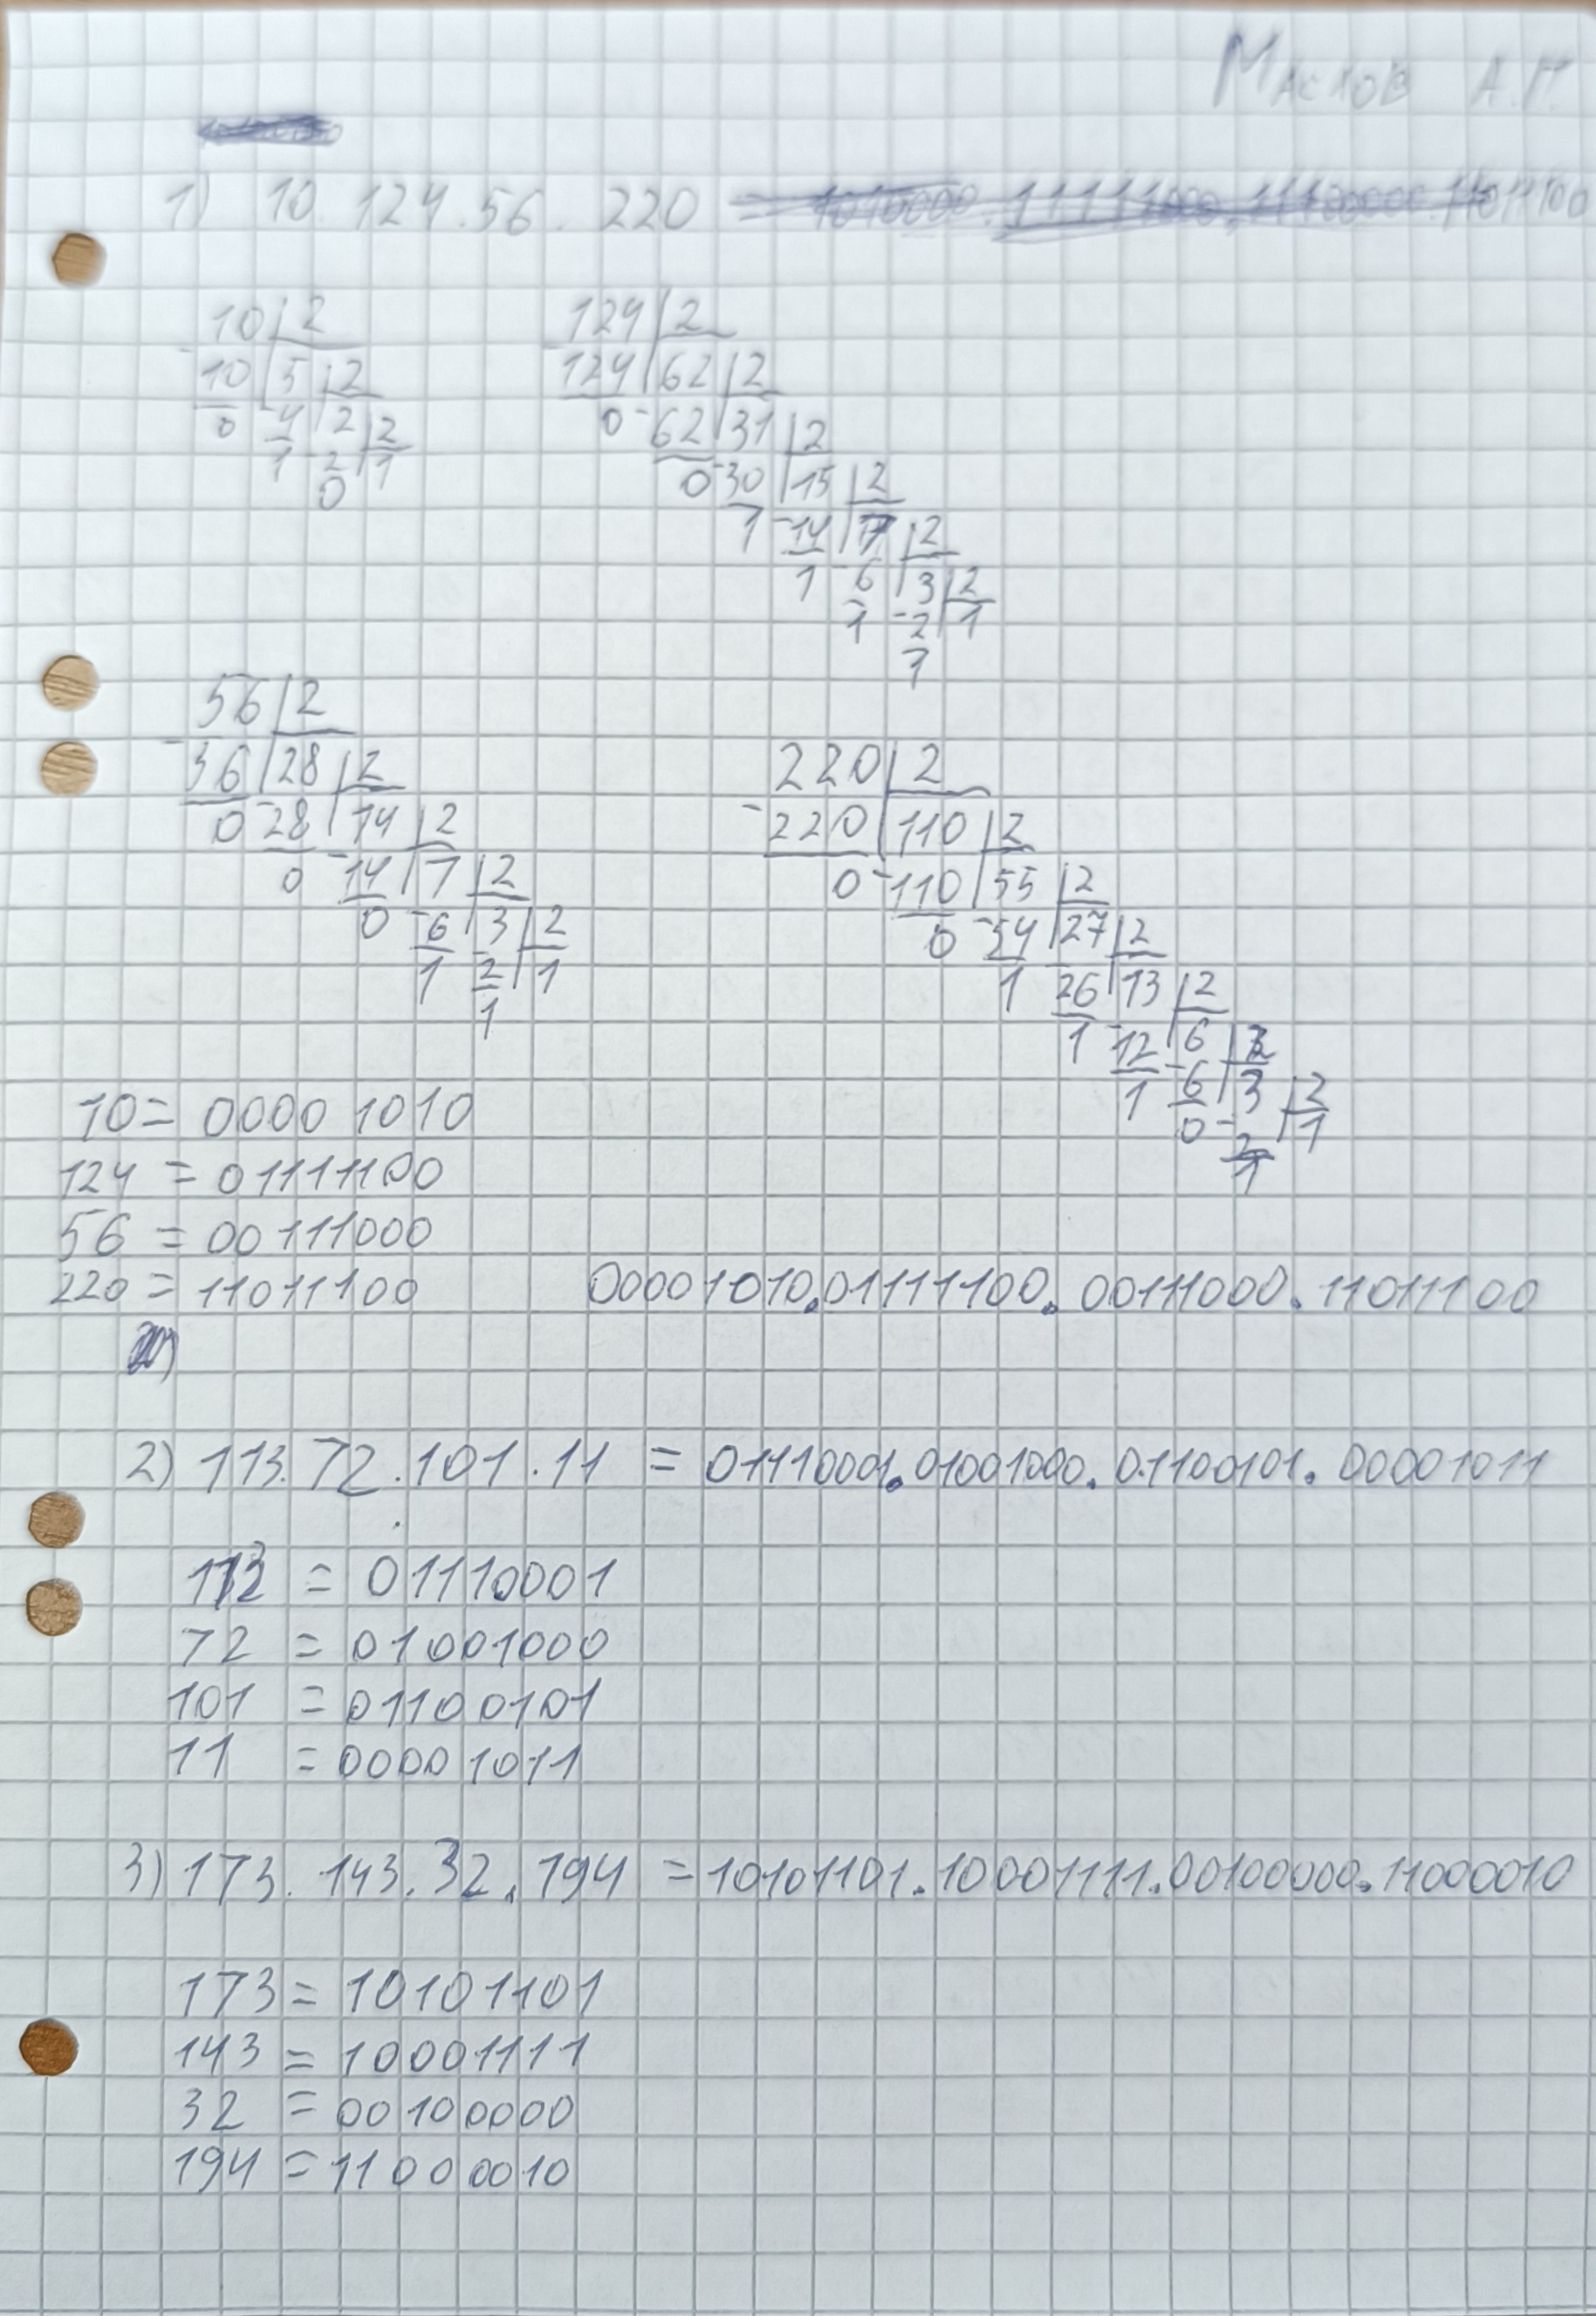 Маслов А.Н.
1) 10.124.56.220 =
10 2
10 5 2
0 4 2 2
1 2 1
0
124 2
124 62 2
0 62 31 2
0 30 15 2
1 14 7 2
1 6 3 2
1 2 1
1
56 2
56 28 2
0 28 14 2
0 14 7 2
0 6 3 2
1 2 1
1
220 2
220 110 2
0 110 55 2
0 54 27 2
1 26 13 2
1 12 6 2
1 6 3 2
0 2 1
1
10 = 00001010
124 = 01111100
56 = 00111000
220 = 11011100
00001010.01111100.00111000.11011100
2) 113.72.101.11 = 01110001.01001000.01100101.00001011
113 = 01110001
72 = 01001000
101 = 01100101
11 = 00001011
3) 173.143.32.194 = 10101101.10001111.00100000.11000010
173 = 10101101
143 = 10001111
32 = 00100000
194 = 11000010